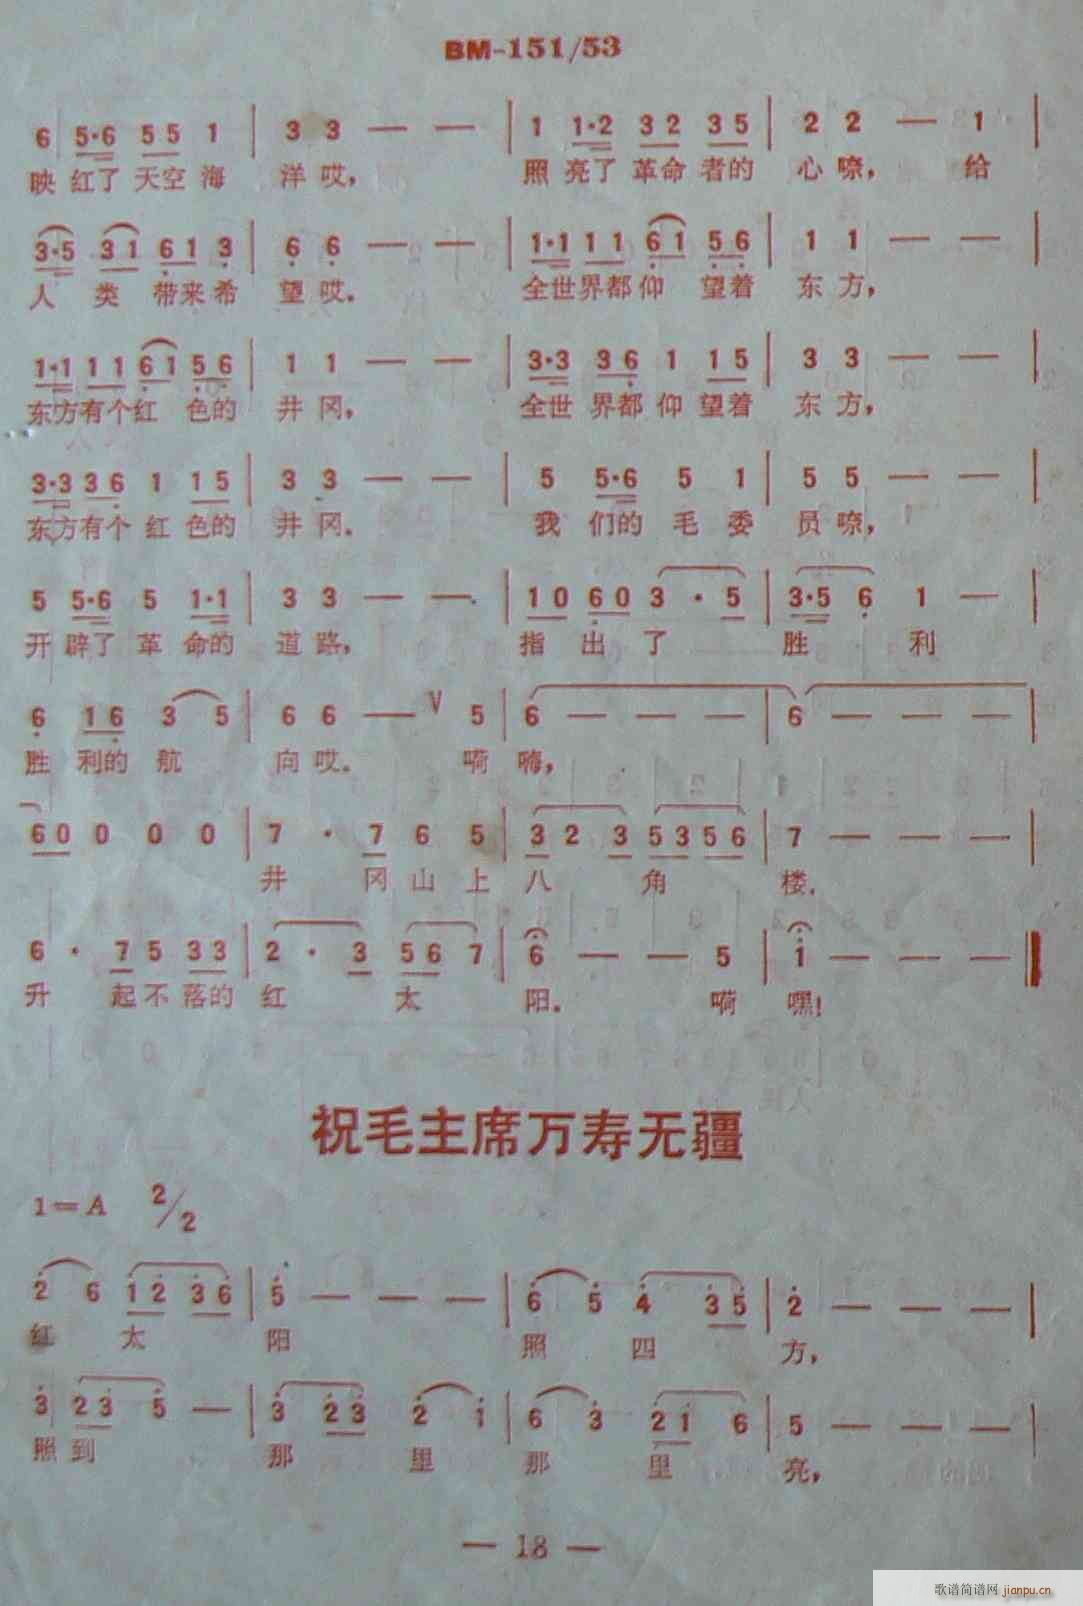 BM-151/53
6 5·6 5 5 1 | 3 3 — — | 1 1·2 3 2 3 5 | 2 2 — 1 |
映 红了 天空 海 洋 哎， 照 亮了 革命 者的 心 嘹， 给
3·5 3 1 6 1 3 | 6 6 — — | 1·1 1 1 6 1 5 6 | 1 1 — — |
人 类 带来 希 望 哎. 全世界都仰 望着 东 方，
1·1 1 1 6 1 5 6 | 1 1 — — | 3·3 3 6 1 1 5 | 3 3 — — |
东方有个红 色的 井 冈， 全世 界都 仰 望着 东 方，
3·3 3 6 1 1 5 | 3 3 — — | 5 5·6 5 1 | 5 5 — — |
东方有个 红 色的 井 冈. 我 们的 毛 委 员 嘹，
5 5·6 5 1·1 | 3 3 — — | 1 0 6 0 3 · 5 | 3·5 6 1 — |
开 辟了 革 命的 道 路， 指 出 了 胜 利
6 1 6 3 5 | 6 6 — V 5 | 6 — — — | 6 — — — |
胜 利的 航 向 哎. 嗬 嗨，
6 0 0 0 0 | 7 · 7 6 5 | 3 2 3 5 3 5 6 | 7 — — — |
井 冈 山 上 八 角 楼.
6 · 7 5 3 3 | 2 · 3 5 6 7 | 6 — — 5 | 1 — — — ‖
升 起不 落的 红 太 阳. 嗬 嘿!
祝毛主席万寿无疆
1=A 2/2
2 6 1 2 3 6 | 5 — — — | 6 5 4 3 5 | 2 — — — |
红 太 阳 照 四 方，
3 2 3 5 — | 3 2 3 2 1 | 6 3 2 1 6 | 5 — — — |
照 到 那 里 那 里 亮，
— 18 —
歌谱简谱网 jianpu.cn